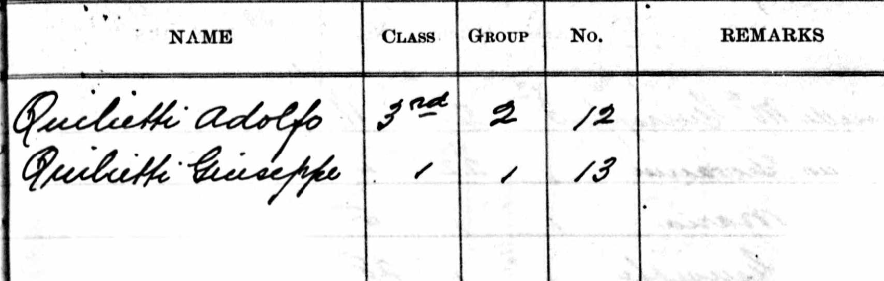 NAME CLASS GROUP No. REMARKS
Quilietti Adolfo 3rd 2 12
Quilietti Giuseppe 1 1 13